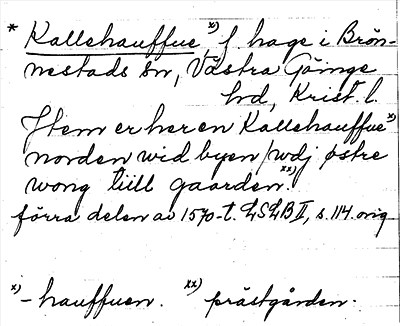 * Kallehauffue x), f. hage i Brön-
nestads sn, Västra Göinge
hd, Krist. l.
Item er her en Kallehauffue x)
norden wid byen / wdj østre
wong till gaarden. xx)
förra delen av 1570-t. LSLB II, s. 114. orig
x) - hauffuen. xx) prästgården.